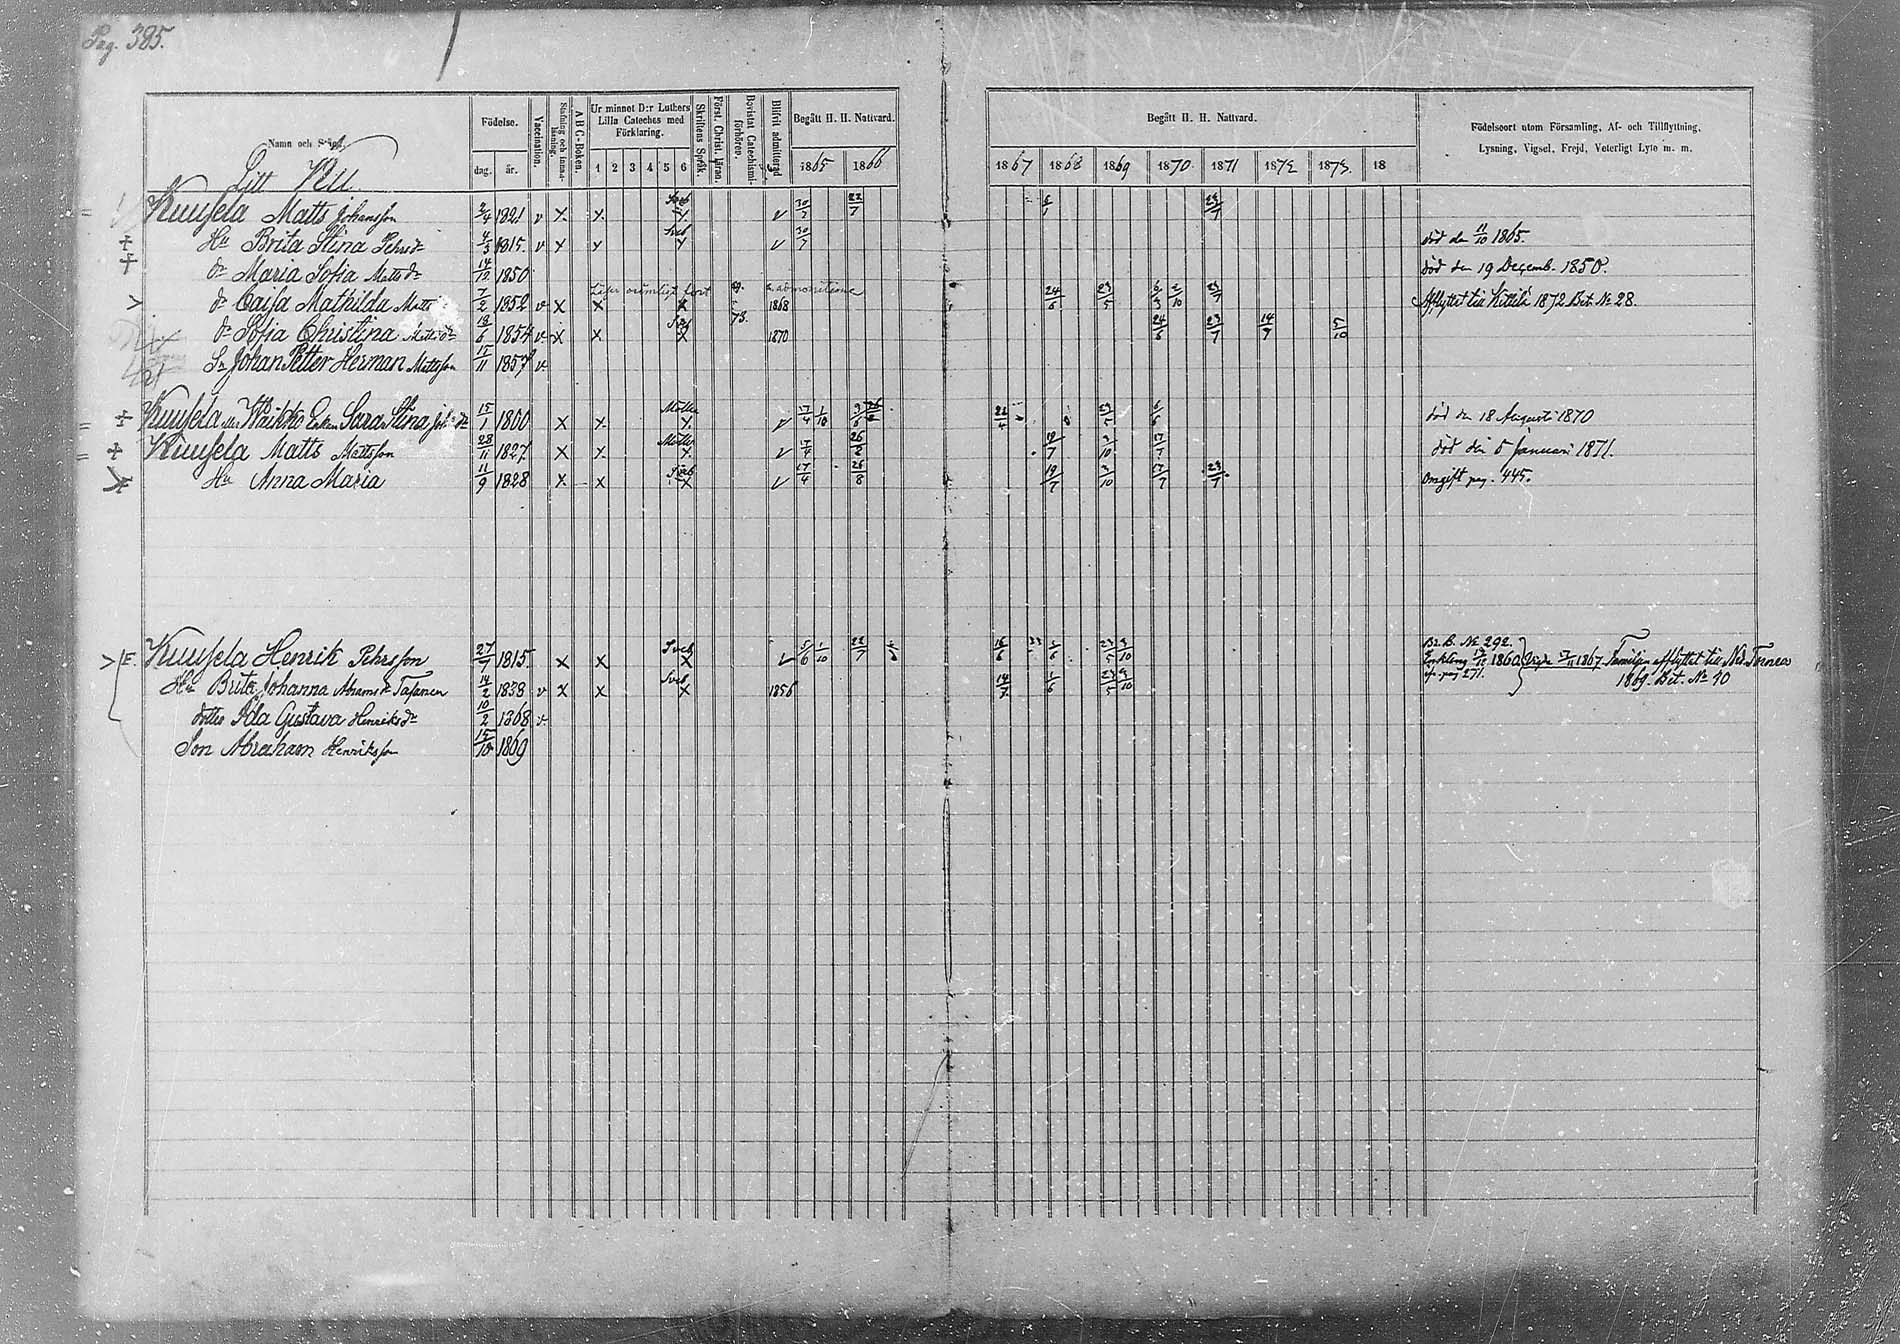 Pag. 385.
Namn och Stånd.
Födelse.
dag. år.
Vaccination.
Stafning och innan-läsning.
ABC-Boken.
Ur minnet D:r Luthers Lilla Cateches med Förklaring.
1 2 3 4 5 6
Skriftens Språk.
Först. Christ. läran.
Bevistat Catechismi-förhören.
Blifvit admitterad
Begått H. H. Nattvard.
1865 1866
Begått H. H. Nattvard.
1867 1868 1869 1870 1871 1872 1873 18
Födelseort utom Församling, Af- och Tillflyttning,
Lysning, Vigsel, Frejd, Veterligt Lyte m. m.
Litt Ku
Kuusela Matts Johansson 2/4 1821 v x x Sveb x v 30/7 22/7 23/7
Hu Brita Stina Pehrsdr 4/3 1815 v x x Sveb x v 30/7 död den 11/10 1865.
dr Maria Sofia Mattsdr 14/12 1850 död den 19 Decemb. 1850.
dr Cajsa Mathilda Matts 7/2 1852 v x x x 1868 24/6 23/5 2/10 23/7 Afflyttat till Kittilä 1872 Bet. No 28.
dr Sofia Christina Mattsdr 18/6 1854 v x x Sveb x 1870 24/6 23/7 14/9 5/10
Sn Johan Petter Herman Mattsson 15/11 1857 v
Kuusela Waikko Enkan Sara Stina Joh.dr 15/1 1800 x x x v 17/4 1/10 23/5 6/6 död den 18 Augusti 1870
Kuusela Matts Mattsson 28/11 1827 x x x v 17/4 26/8 19/7 3/10 17/7 död den 5 Januari 1871.
Hu Anna Maria 11/9 1828 x x Sveb x v 17/4 26/8 19/7 3/10 17/7 23/7 Omgift pag. 445.
Br. B. No 292.
E. Kuusela Henrik Pehrsson 27/7 1815 x x Sveb x v 5/6 1/10 22/7 16/6 1/6 23/5 3/10 Enkling 1860 1867. Familjen afflyttat till Ned. Tornea
Hu Brita Johanna Abramsdr Tapanen 14/2 1838 v x x Sveb x 1856 14/7 1/6 23/5 3/10 pag 271. 1869. Bet. No 40
dotter Ida Gustava Henriksdr 10/2 1868 v
Son Abraham Henriksson 15/10 1869